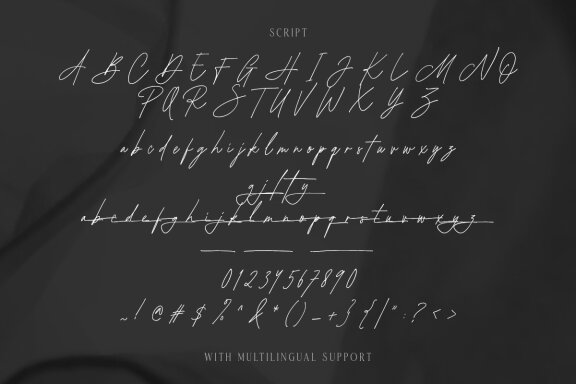 SCRIPT
A B C D E F G H I J K L M N O
P Q R S T U V W X Y Z
a b c d e f g h i j k l m n o p q r s t u v w x y z
g j f t y
a b c d e f g h i j k l m n o p q r s t u v w x y z
0 1 2 3 4 5 6 7 8 9 0
~ ! @ # $ % ^ & * ( ) _ + } { | " : ? < >
WITH MULTILINGUAL SUPPORT